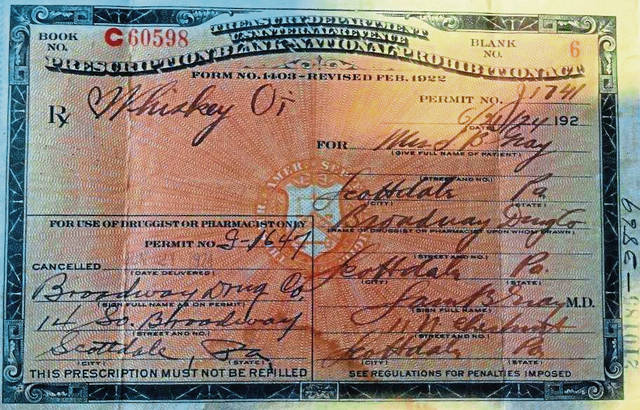 TREASURY DEPARTMENT
U.S. INTERNAL REVENUE
PRESCRIPTION BLANK-NATIONAL PROHIBITION ACT
BOOK NO. C60598
BLANK NO. 6
FORM NO. 1403-REVISED FEB. 1922
Rx Whiskey
PERMIT NO. J1741
192
(DATE)
FOR Mrs J B Gray
(GIVE FULL NAME OF PATIENT)
(STREET AND NO.)
Scottdale Pa
(CITY) (STATE)
Broadway Drug Co
(NAME OF DRUGGIST OR PHARMACIST UPON WHOM DRAWN)
(STREET AND NO.)
Scottdale Pa.
(CITY) (STATE)
Gray M.D.
(SIGN FULL NAME)
Chestnut
(STREET AND NO.)
Scottdale Pa
(CITY) (STATE)
SEE REGULATIONS FOR PENALTIES IMPOSED
FOR USE OF DRUGGIST OR PHARMACIST ONLY
PERMIT NO. J-1647
CANCELLED
(DATE DELIVERED)
Broadway Drug Co.
(SIGN FULL NAME AS ON PERMIT)
14 So. Broadway
(STREET AND NO.)
Scottdale Pa,
(CITY) (STATE)
THIS PRESCRIPTION MUST NOT BE REFILLED